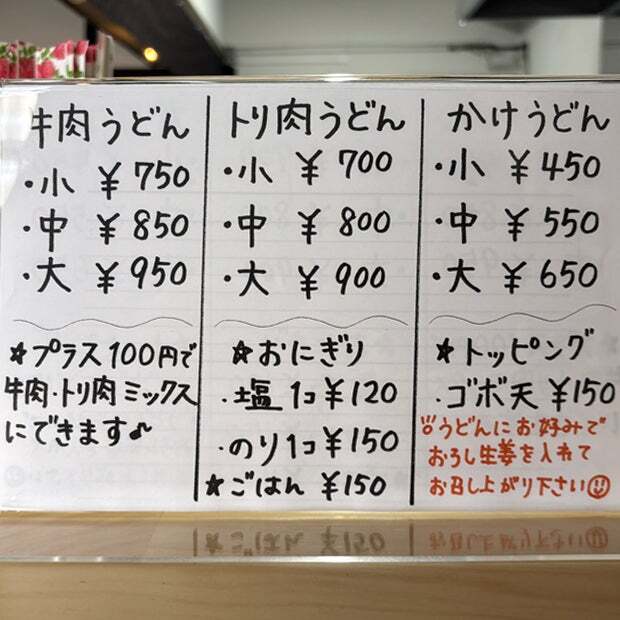 牛肉うどん
・小 ¥750
・中 ¥850
・大 ¥950
★プラス100円で
牛肉・トリ肉ミックス
にできます♪
トリ肉うどん
・小 ¥700
・中 ¥800
・大 ¥900
★おにぎり
・塩 1コ ¥120
・のり 1コ ¥150
★ごはん ¥150
かけうどん
・小 ¥450
・中 ¥550
・大 ¥650
★トッピング
・ゴボ天 ¥150
うどんにお好みで
おろし生姜を入れて
お召し上がり下さい☺